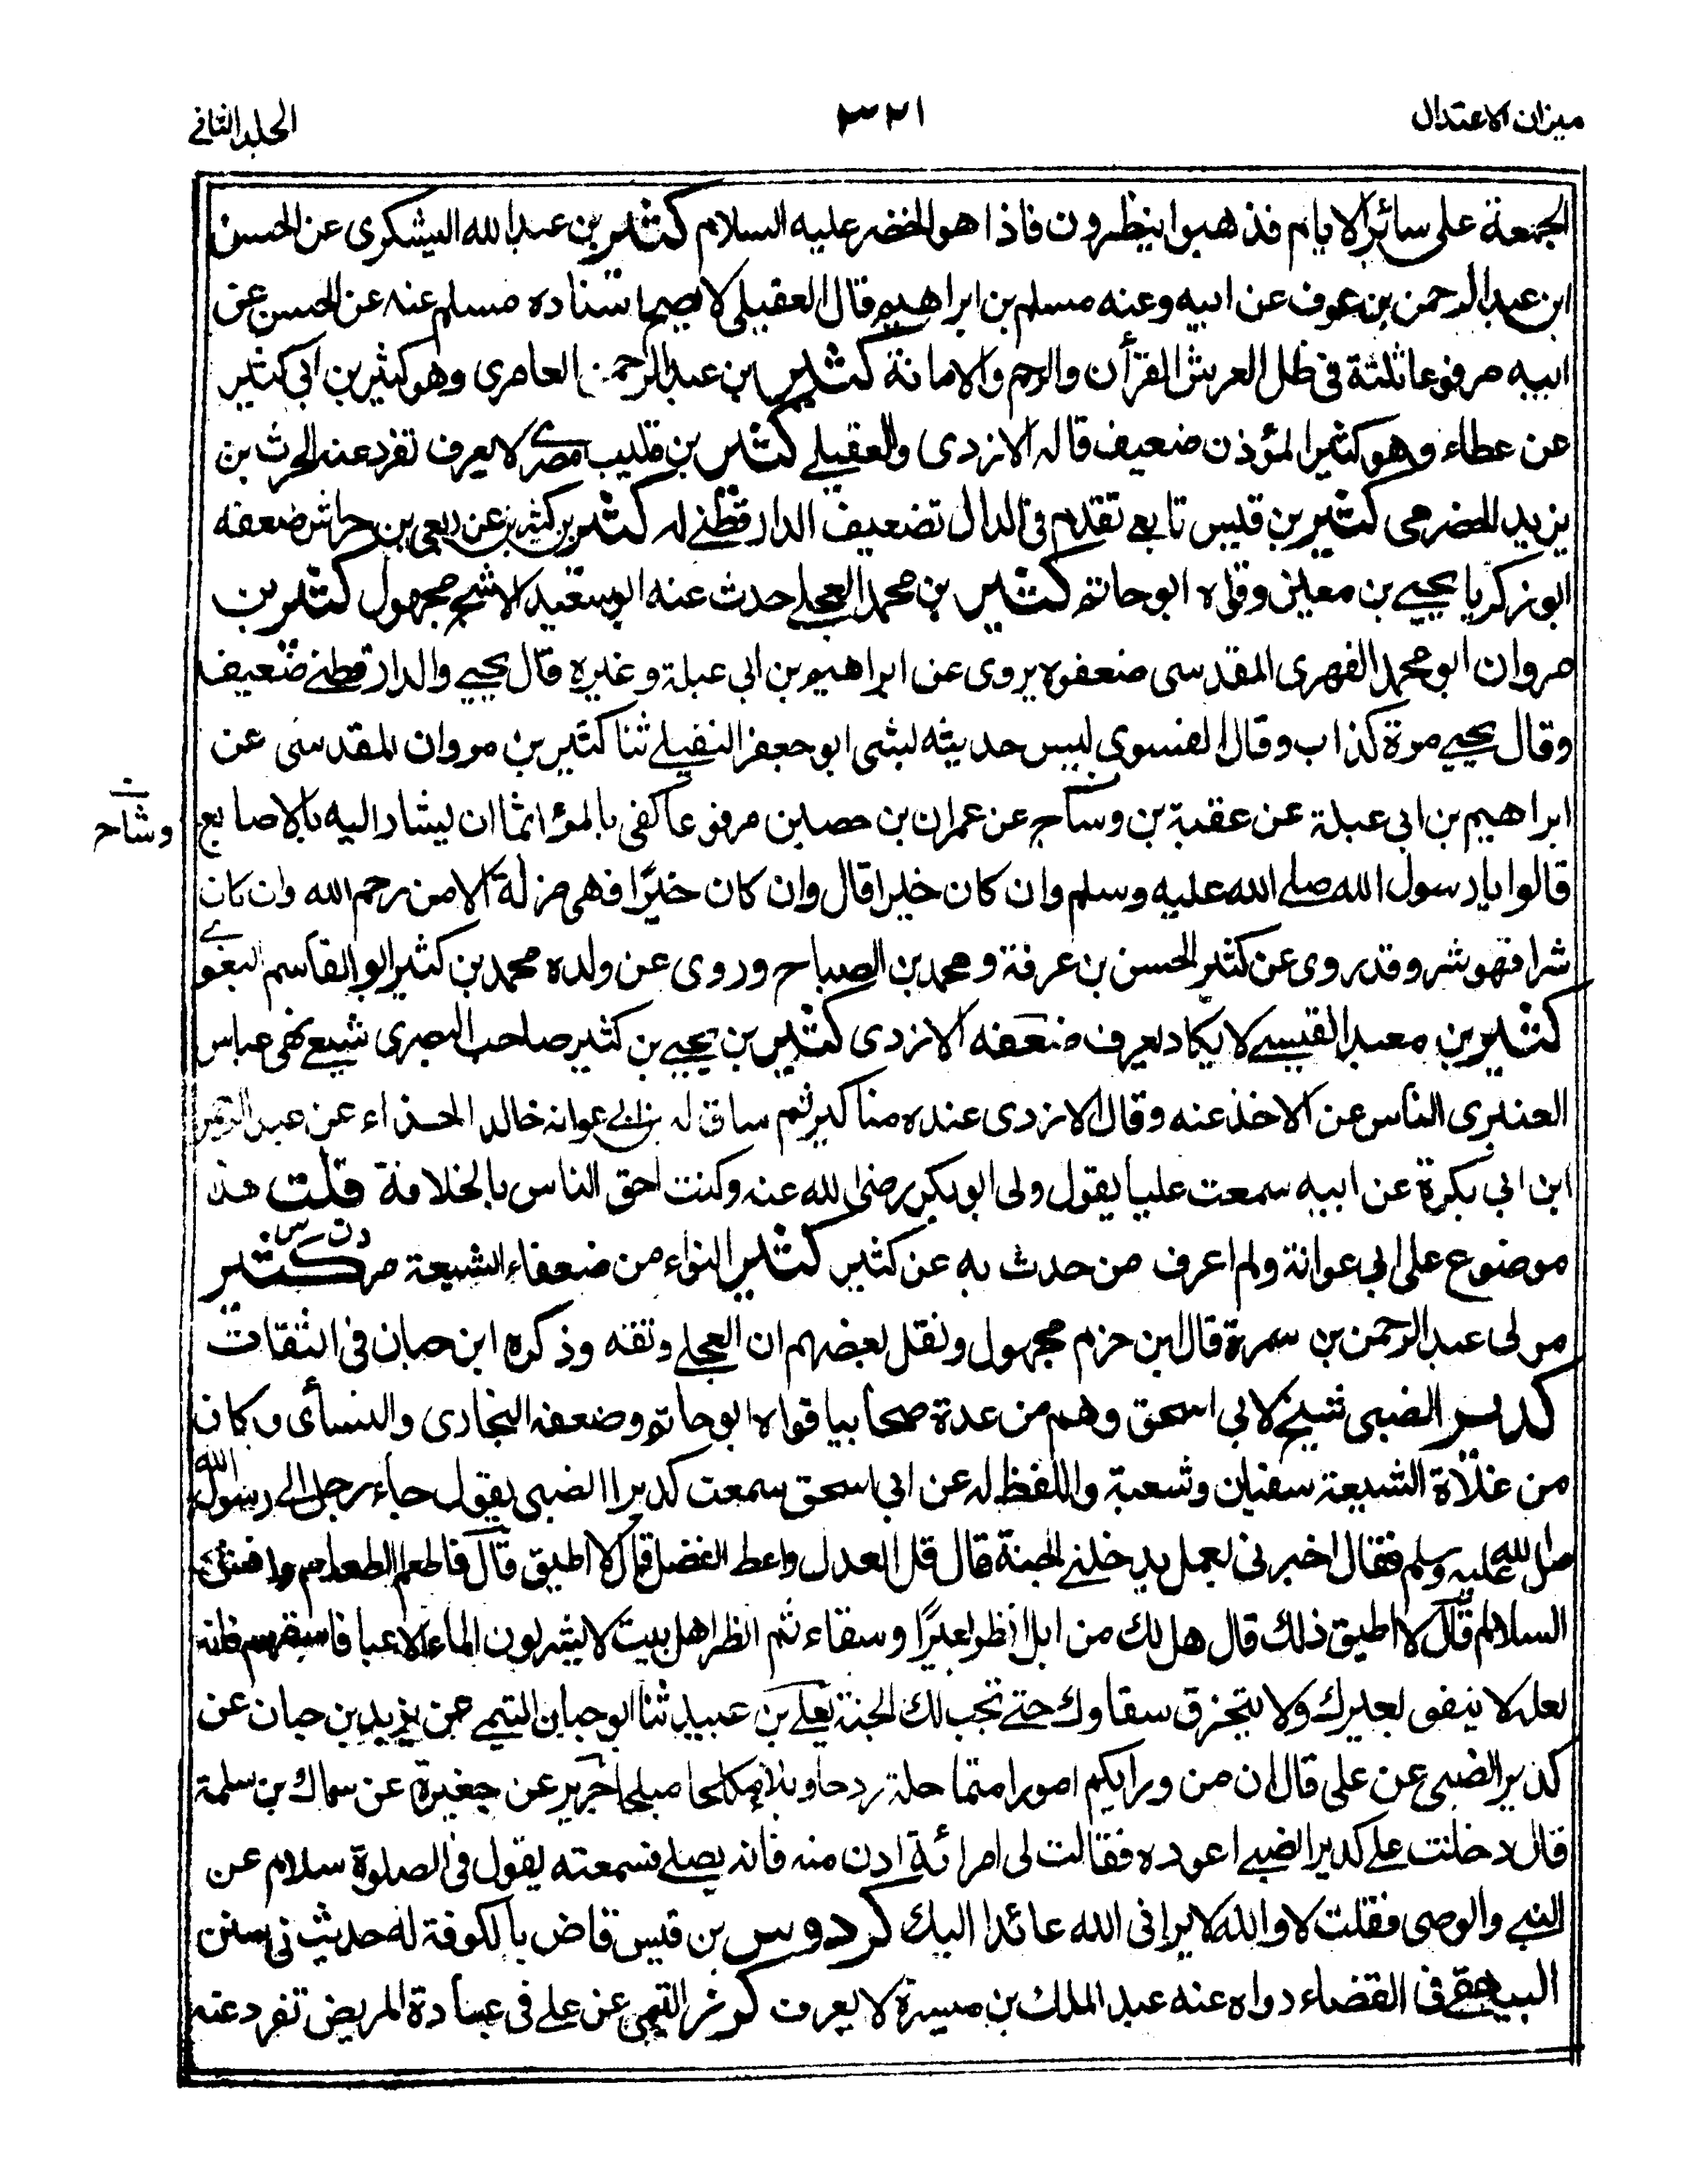 ميزان الاعتدال
٣٢١
الجلد الثاني
الجمعة على سائر الايام فذهبوا ينظرون فاذا هو الخضر عليه السلام كثير بن عبد الله اليشكرى عن الحسن
ابن عبد الرحمن بن عوف عن ابيه وعنه مسلم بن ابراهيم قال العقيلى لا يصح اسناده مسلم عنه عن الحسن عن
ابيه مرفوعا ثلثة فى ظل العرش القرأن والرحم والامانة كثير بن عبد الرحمن العامرى وهو كثير بن ابى كثير
عن عطاء وهو كثير المؤذن ضعيف قاله الازدى والعقيلے كثير بن قليب مصرے لا يعرف تفرد عنه الحرث بن
يزيد الحضرمى كثير بن قيس تابعے تقدم فى الدال تضعيف الدارقطنے له كثير بن كثير عن ربعى بن حراش ضعفه
ابو زكريا يحيےٰ بن معين وقواه ابو حاتم كثير بن محمد العجلے حدث عنه ابو سعيد الاشج مجهول كثير بن
مروان ابو محمد الفهرى المقدسى ضعفوه يروى عن ابراهيم بن ابى عبلة وغيره قال يحيے والدارقطنے ضعيف
وقال يحيے مرة كذاب وقال الفسوى ليس حديثه بشى ابو جعفر النفيلے ثنا كثير بن مروان المقدسى عن
ابراهيم بن ابى عبلة عن عقبة بن وساج عن عمران بن حصين مرفوعا كفى بالمرء اثما ان يشار اليه بالاصابع
وشاح
قالوا يا رسول الله صلے الله عليه وسلم وان كان خيرا قال وان كان خيرًا فهى مزلة الا من رحم الله وان كان
شرا فهو شر وقد روى عن كثير الحسن بن عرفة ومحمد بن الصباح وروى عن ولده محمد بن كثير ابو القاسم البغوے
كثير بن معبد القيسے لا يكاد يعرف ضعفه الازدى كثير بن يحيے بن كثير صاحب البصرى شيعے نهى عباس
العنبرى الناس عن الاخذ عنه وقال الازدى عنده مناكير ثم ساق له عن ابے عوانه خالد الحذاء عن عبد الرحمن
ابن ابى بكرة عن ابيه سمعت عليا يقول ولى ابو بكر رضى الله عنه وكنت احق الناس بالخلافة قلت هذا
موضوع على ابى عوانة ولم اعرف من حدث به عن كثير كثير النواء من ضعفاء الشيعة مر كثير
د ن س
مولى عبد الرحمن بن سمرة قال ابن حزم مجهول ونقل بعضهم ان العجلے وثقه وذكره ابن حبان فى الثقات
كدير الضبى شيخ لابى اسحق وهم من عدة صحابيا قواه ابو حاتم وضعفه البخارى والنسائى وكان
من غلاة الشيعة سفيان وشعبة واللفظ له عن ابى اسحق سمعت كديرا الضبى يقول جاء رجل الے رسول الله
صلى الله عليه وسلم فقال اخبرنى بعمل يدخلنے الجنة قال قل العدل واعط الفضل قال لا اطيق قال فاطعم الطعام وافش
السلام قال لا اطيق ذلك قال هل لك من ابل انظر بعيرًا وسقاء ثم انظر اهل بيت لا يشربون الماء الا غبا فاسقهم فانه
لعله لا ينفق بعيرك ولا يتخرق سقاوك حتے تجب لك الجنة يعلے بن عبيد ثنا ابو حيان التيمے عن يزيد بن حيان عن
كدير الضبى عن على قال ان من ورايكم امورا متماحلة ردحا وبلاء مكلحا مبلحا جرير عن مغيرة عن سماك بن سلمة
قال دخلت علے كدير الضبے اعوده فقالت لى امرائة ادن منه فانه يصلے فسمعته يقول فى الصلوة سلام عن
النبے والوصى فقلت لا والله لا يرانى الله عائدا اليك كردوس بن قيس قاض بالكوفة له حديث فى سنن
البيهقے فى القضاء رواه عنه عبد الملك بن ميسرة لا يعرف كرز التيمى عن علے فى عيادة المريض تفرد عنه